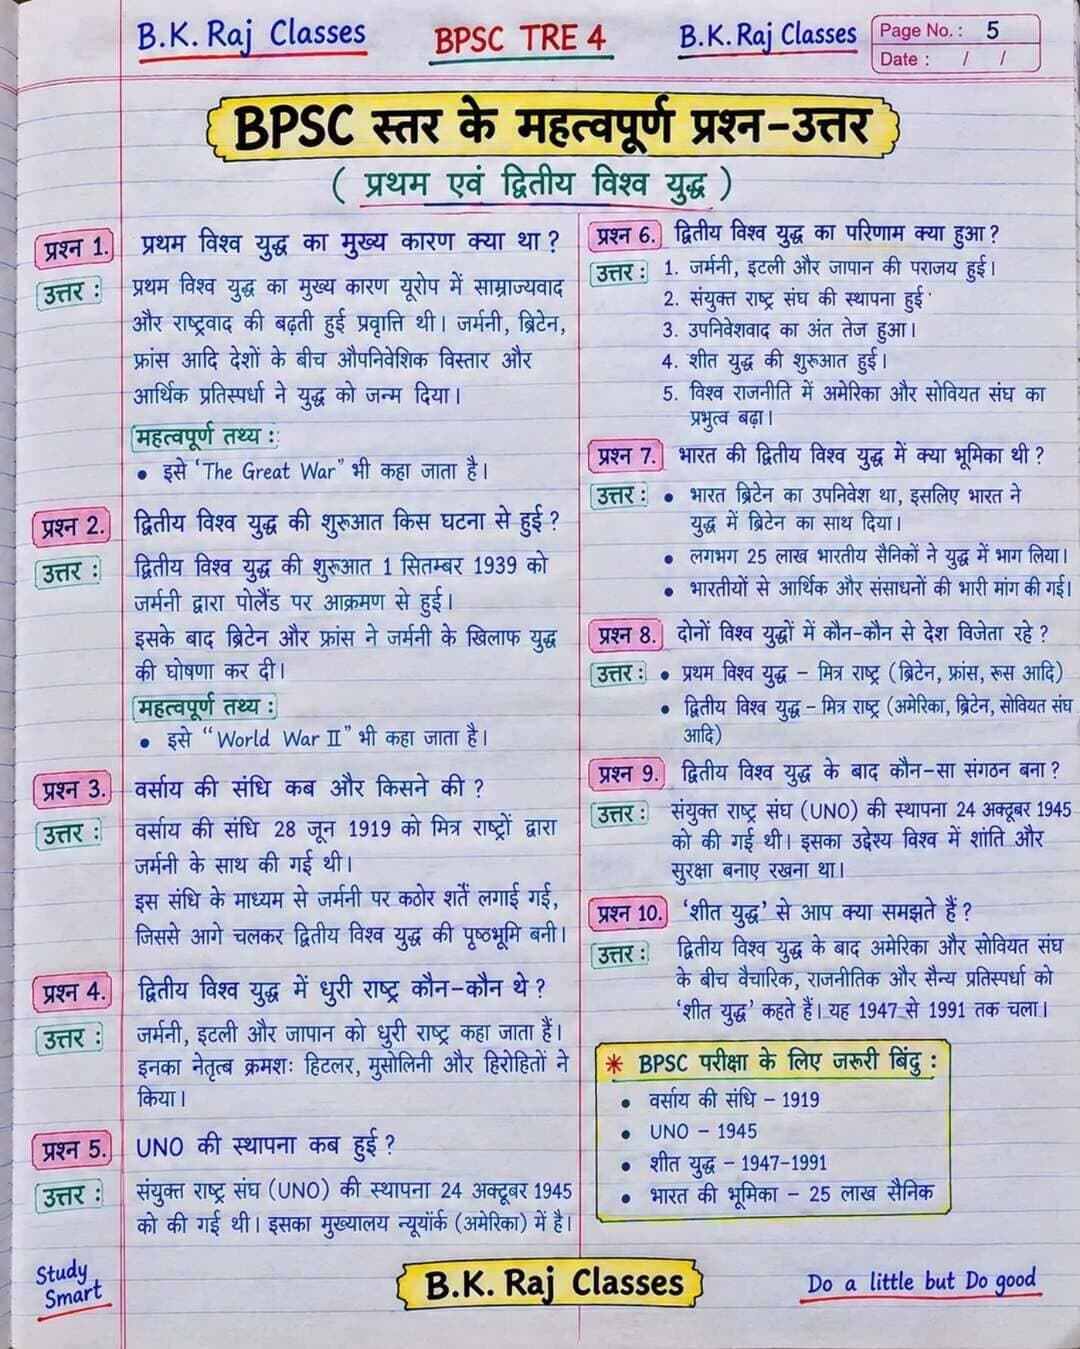 B.K. Raj Classes
BPSC TRE 4
B.K. Raj Classes
Page No.: 5
Date : / /
BPSC स्तर के महत्वपूर्ण प्रश्न-उत्तर
( प्रथम एवं द्वितीय विश्व युद्ध )
प्रश्न 1. प्रथम विश्व युद्ध का मुख्य कारण क्या था ?
उत्तर : प्रथम विश्व युद्ध का मुख्य कारण यूरोप में साम्राज्यवाद
और राष्ट्रवाद की बढ़ती हुई प्रवृत्ति थी। जर्मनी, ब्रिटेन,
फ्रांस आदि देशों के बीच औपनिवेशिक विस्तार और
आर्थिक प्रतिस्पर्धा ने युद्ध को जन्म दिया।
महत्वपूर्ण तथ्य :
• इसे ‘The Great War” भी कहा जाता है।
प्रश्न 2. द्वितीय विश्व युद्ध की शुरूआत किस घटना से हुई ?
उत्तर : द्वितीय विश्व युद्ध की शुरूआत 1 सितम्बर 1939 को
जर्मनी द्वारा पोलैंड पर आक्रमण से हुई।
इसके बाद ब्रिटेन और फ्रांस ने जर्मनी के खिलाफ युद्ध
की घोषणा कर दी।
महत्वपूर्ण तथ्य :
• इसे “World War II” भी कहा जाता है।
प्रश्न 3. वर्साय की संधि कब और किसने की ?
उत्तर : वर्साय की संधि 28 जून 1919 को मित्र राष्ट्रों द्वारा
जर्मनी के साथ की गई थी।
इस संधि के माध्यम से जर्मनी पर कठोर शर्तें लगाई गई,
जिससे आगे चलकर द्वितीय विश्व युद्ध की पृष्ठभूमि बनी।
प्रश्न 4. द्वितीय विश्व युद्ध में धुरी राष्ट्र कौन-कौन थे ?
उत्तर : जर्मनी, इटली और जापान को धुरी राष्ट्र कहा जाता हैं।
इनका नेतृत्ब क्रमशः हिटलर, मुसोलिनी और हिरोहितों ने
किया।
प्रश्न 5. UNO की स्थापना कब हुई ?
उत्तर : संयुक्त राष्ट्र संघ (UNO) की स्थापना 24 अक्टूबर 1945
को की गई थी। इसका मुख्यालय न्यूयॉर्क (अमेरिका) में है।
प्रश्न 6. द्वितीय विश्व युद्ध का परिणाम क्या हुआ ?
उत्तर : 1. जर्मनी, इटली और जापान की पराजय हुई।
2. संयुक्त राष्ट्र संघ की स्थापना हुई
3. उपनिवेशवाद का अंत तेज हुआ।
4. शीत युद्ध की शुरूआत हुई।
5. विश्व राजनीति में अमेरिका और सोवियत संघ का
प्रभुत्व बढ़ा।
प्रश्न 7. भारत की द्वितीय विश्व युद्ध में क्या भूमिका थी ?
उत्तर : • भारत ब्रिटेन का उपनिवेश था, इसलिए भारत ने
युद्ध में ब्रिटेन का साथ दिया।
• लगभग 25 लाख भारतीय सैनिकों ने युद्ध में भाग लिया।
• भारतीयों से आर्थिक और संसाधनों की भारी मांग की गई।
प्रश्न 8. दोनों विश्व युद्धों में कौन-कौन से देश विजेता रहे ?
उत्तर : • प्रथम विश्व युद्ध – मित्र राष्ट्र (ब्रिटेन, फ्रांस, रूस आदि)
• द्वितीय विश्व युद्ध – मित्र राष्ट्र (अमेरिका, ब्रिटेन, सोवियत संघ
आदि)
प्रश्न 9. द्वितीय विश्व युद्ध के बाद कौन-सा संगठन बना ?
उत्तर : संयुक्त राष्ट्र संघ (UNO) की स्थापना 24 अक्टूबर 1945
को की गई थी। इसका उद्देश्य विश्व में शांति और
सुरक्षा बनाए रखना था।
प्रश्न 10. ‘शीत युद्ध’ से आप क्या समझते हैं ?
उत्तर : द्वितीय विश्व युद्ध के बाद अमेरिका और सोवियत संघ
के बीच वैचारिक, राजनीतिक और सैन्य प्रतिस्पर्धा को
‘शीत युद्ध’ कहते हैं। यह 1947 से 1991 तक चला।
* BPSC परीक्षा के लिए जरूरी बिंदु :
• वर्साय की संधि – 1919
• UNO – 1945
• शीत युद्ध – 1947-1991
• भारत की भूमिका – 25 लाख सैनिक
Study
Smart
B.K. Raj Classes
Do a little but Do good